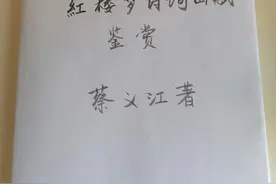 红楼梦诗词曲赋
鉴赏
蔡义江著